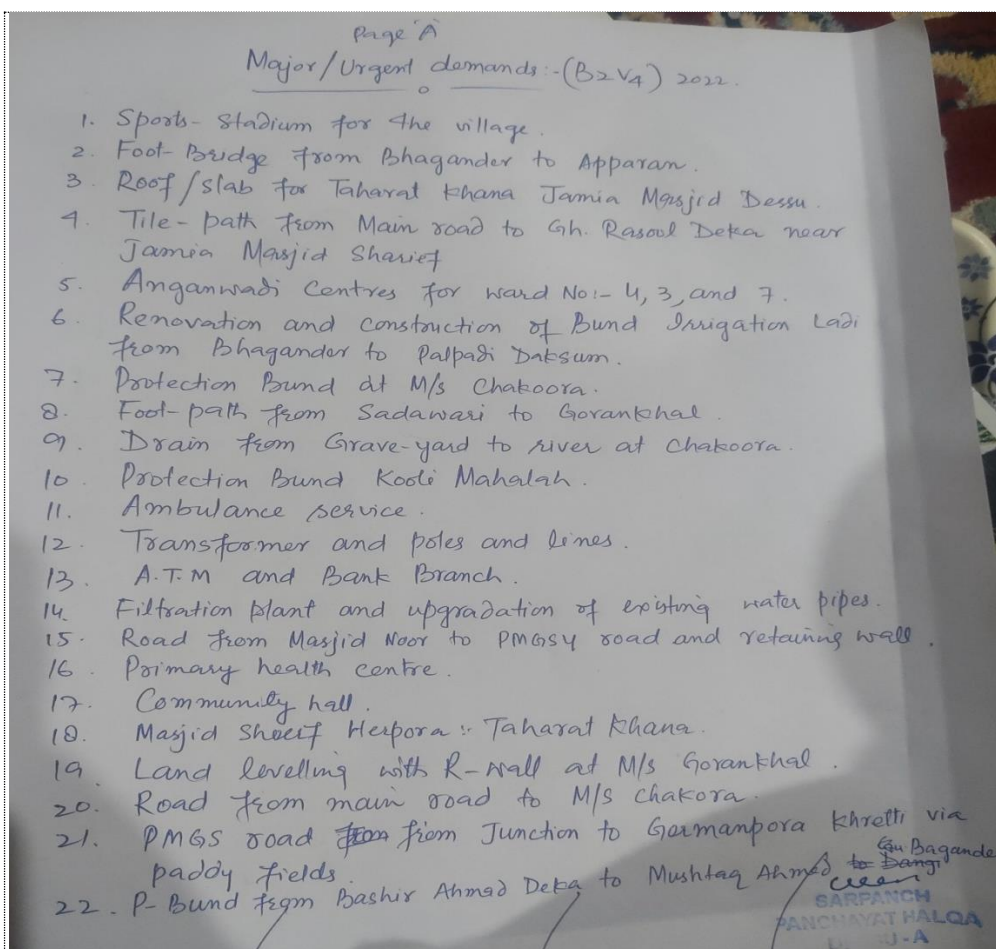 Page "A"
Major/Urgent demands:-(B2V4) 2022.
1. Sports-Stadium for the village.
2. Foot-Bridge from Bhagander to Apparan.
3. Roof/slab for Taharat khana Jamia Masjid Dessu.
4. Tile-path from Main road to Gh. Rasool Deka near
Jamia Masjid Sharief
5. Anganwadi Centres for ward No:- 4, 3, and 7.
6. Renovation and construction of Bund Irrigation Ladi
from Bhagander to Palpadi Daksum.
7. Protection Bund at M/s Chakoora.
8. Foot-path from Sadawari to Gorankhal.
9. Drain from Grave-yard to river at Chakoora.
10. Protection Bund Kooli Mahalah.
11. Ambulance service.
12. Transformer and poles and lines.
13. A.T.M and Bank Branch.
14. Filtration plant and upgradation of existing water pipes.
15. Road from Masjid Noor to PMGSY road and retaining wall.
16. Primary health centre.
17. Community hall.
18. Masjid Sherif Herpora :- Taharat Khana.
19. Land levelling with R-wall at M/s Gorankhal.
20. Road from main road to M/s Chakora.
21. PMGS road from from Junction to Germanpora khretti via
paddy fields
22. P-Bund from Bashir Ahmad Deka to Mushtaq Ahmed to Dangi
Bagande
SARPANCH
PANCHAYAT HALQA
U-A